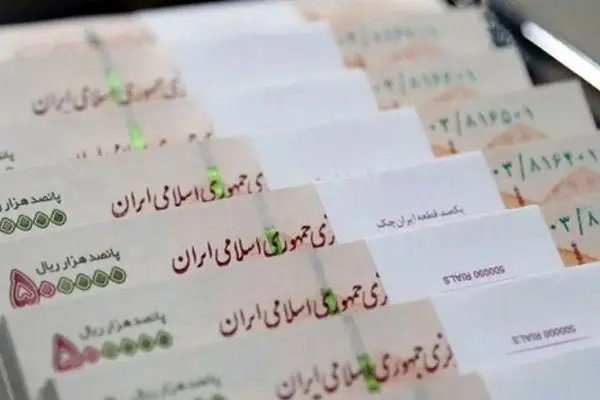 جمهوری اسلامی ایران
۰۳/۸۱۶۵۰۱
۰۳/۸۱۶۴۰۱
پانصد هزار ریال
جمهوری اسلامی ایران
یکصد قطعه ایران چک
۰۳/۸
پانصد هزار ریال
۵۰۰۰۰۰
زی جمهوری اسلامی ایران
500000 RIALS
پانصد هزار ریال
۵۰۰۰۰۰
زی جمهوری اسلامی ایران
500000 RIALS
پانصد هزار ریال
کزی جمهوری اسلامی ایران